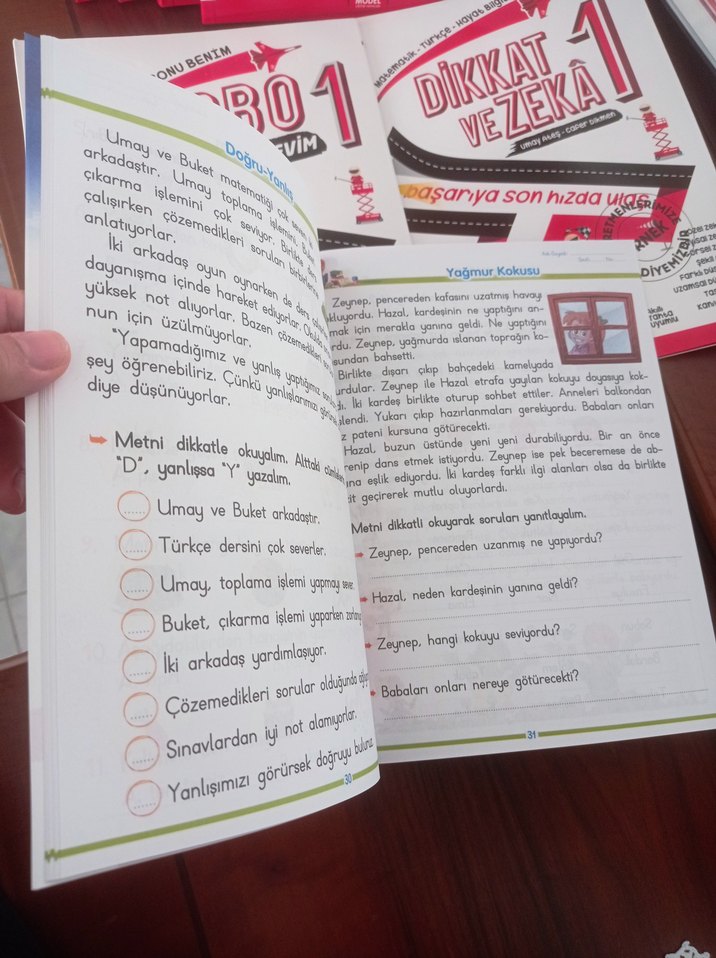 MODEL
ONU BENİM
OBO 1
EVİM
Matematik - Türkçe - Hayat Bilgisi
DİKKAT
VE ZEKÂ 1
Umay Ateş - Caner Dikmen
başarıya son hızda ulaş
Doğru-Yanlış
Umay ve Buket matematiği çok
arkadaştır. Umay toplama işlemini, Buket
çıkarma işlemini çok seviyor. Birlikte ders
çalışırken çözemedikleri soruları birbirlerine
anlatıyorlar.
İki arkadaş oyun oynarken de ders
dayanışma içinde hareket ediyorlar. Okulda
yüksek not alıyorlar. Bazen çözemedikleri
nun için üzülmüyorlar.
"Yapamadığımız ve yanlış yaptığımız
şey öğrenebiliriz. Çünkü yanlışlarımızı
diye düşünüyorlar.
Metni dikkatle okuyalım. Alttaki
"D", yanlışsa "Y" yazalım.
...... Umay ve Buket arkadaştır.
...... Türkçe dersini çok severler.
...... Umay, toplama işlemi yapmayı sever.
...... Buket, çıkarma işlemi yaparken
...... İki arkadaş yardımlaşıyor.
...... Çözemedikleri sorular olduğunda
...... Sınavlardan iyi not alamıyorlar.
...... Yanlışımızı görürsek doğruyu buluruz.
30
Yağmur Kokusu
Zeynep, pencereden kafasını uzatmış havayı
kluyordu. Hazal, kardeşinin ne yaptığını an-
mak için merakla yanına geldi. Ne yaptığını
rdu. Zeynep, yağmurda ıslanan toprağın ko-
sundan bahsetti.
Birlikte dışarı çıkıp bahçedeki kamelyada
urdular. Zeynep ile Hazal etrafa yayılan kokuyu doyasıya kok-
dı. İki kardeş birlikte oturup sohbet ettiler. Anneleri balkondan
slendi. Yukarı çıkıp hazırlanmaları gerekiyordu. Babaları onları
z pateni kursuna götürecekti.
Hazal, buzun üstünde yeni yeni durabiliyordu. Bir an önce
renip dans etmek istiyordu. Zeynep ise pek beceremese de ab-
ına eşlik ediyordu. İki kardeş farklı ilgi alanları olsa da birlikte
it geçirerek mutlu oluyorlardı.
Metni dikkatli okuyarak soruları yanıtlayalım.
Zeynep, pencereden uzanmış ne yapıyordu?
Hazal, neden kardeşinin yanına geldi?
Zeynep, hangi kokuyu seviyordu?
Babaları onları nereye götürecekti?
31